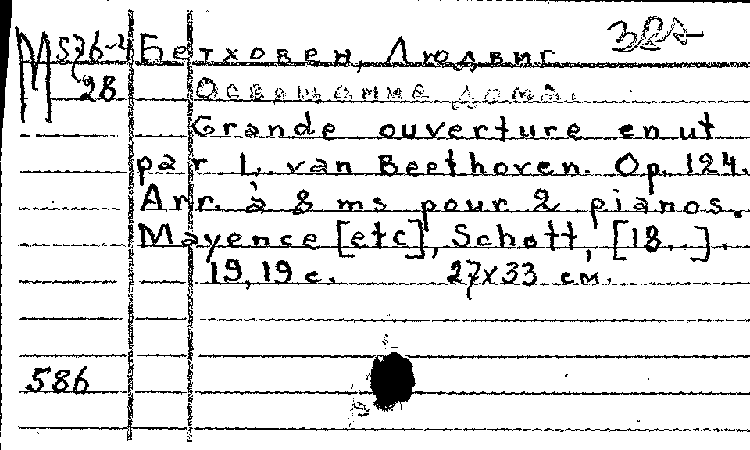 М 576-4 Бетховен, Людвиг
28 Освещание дома.
Grande ouverture en ut
par L. van Beethoven. Op. 124.
Arr. à 8 ms pour 2 pianos.
Mayence [etc], Schott, [18..].
19, 19 с. 27x33 см.
586